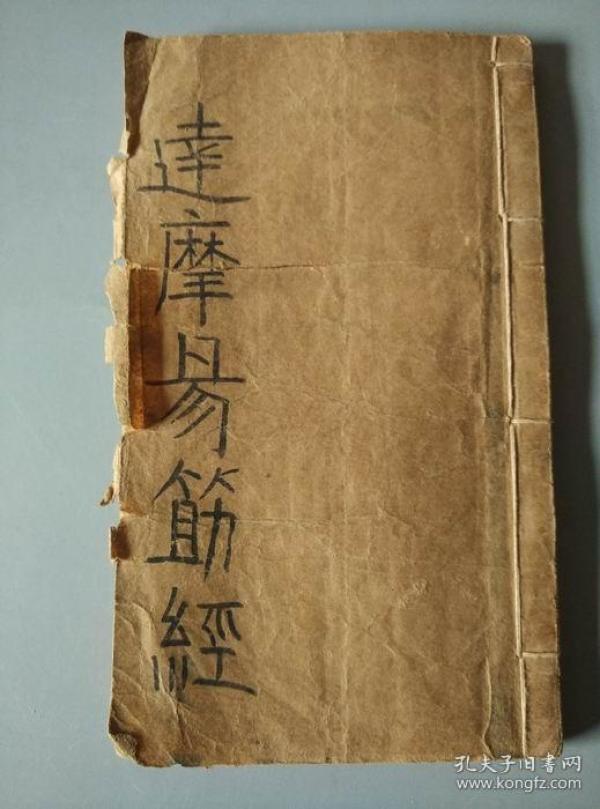 達摩昜筋經
孔夫子旧書网
www.kongfz.com